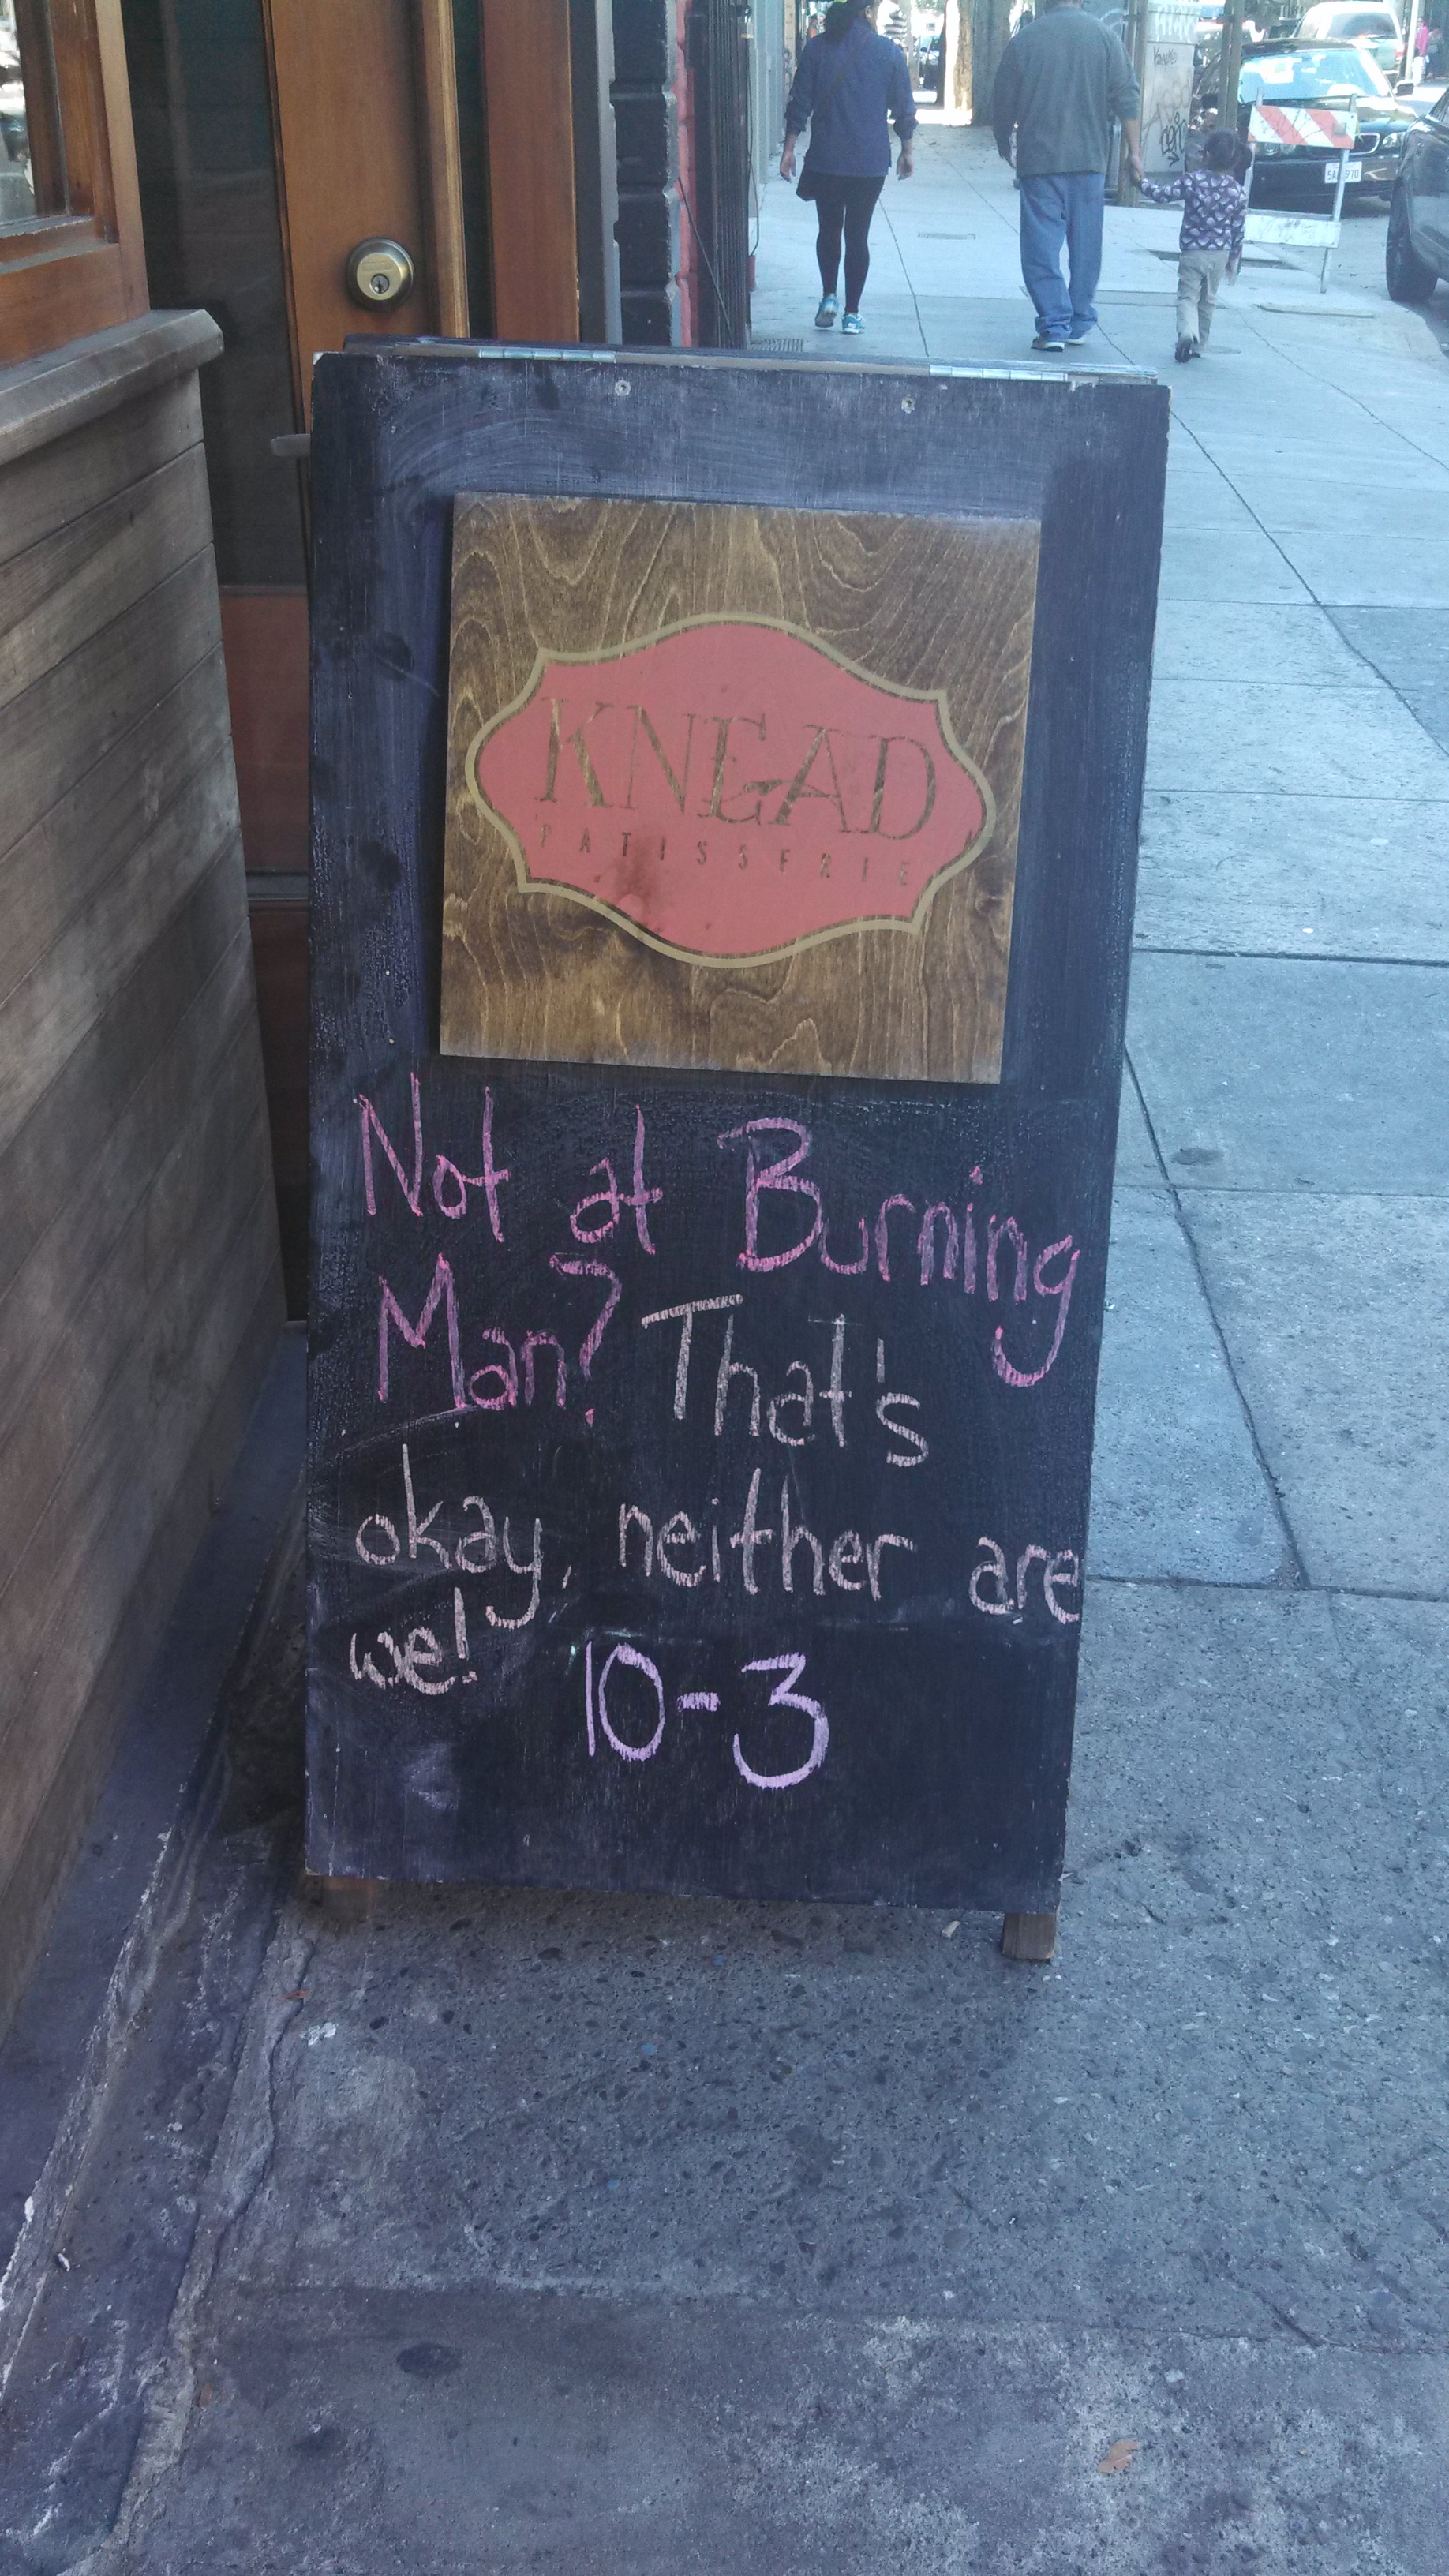 KNEAD
PATISSERIE
Not at Burning
Man? That's
okay, neither are
we!
10-3